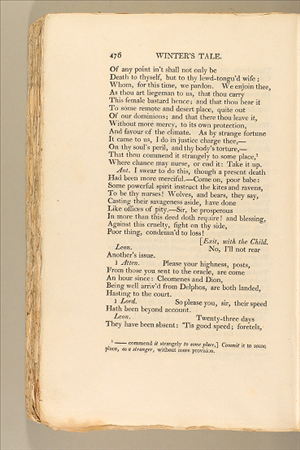 476 WINTER'S TALE.
Of any point in't shall not only be
Death to thyself, but to thy lewd-tongu'd wife;
Whom, for this time, we pardon. We enjoin thee,
As thou art liegeman to us, that thou carry
This female bastard hence; and that thou bear it
To some remote and desert place, quite out
Of our dominions; and that there thou leave it,
Without more mercy, to its own protection,
And favour of the climate. As by strange fortune
It came to us, I do in justice charge thee,—
On thy soul's peril, and thy body's torture,—
That thou commend it strangely to some place,¹
Where chance may nurse, or end it: Take it up.
Ant. I swear to do this, though a present death
Had been more merciful.—Come on, poor babe:
Some powerful spirit instruct the kites and ravens,
To be thy nurses! Wolves, and bears, they say,
Casting their savageness aside, have done
Like offices of pity.—Sir, be prosperous
In more than this deed doth require! and blessing,
Against this cruelty, fight on thy side,
Poor thing, condemn'd to loss!
[Exit, with the Child.
Leon. No, I'll not rear
Another's issue.
1 Atten. Please your highness, posts,
From those you sent to the oracle, are come
An hour since: Cleomenes and Dion,
Being well arriv'd from Delphos, are both landed,
Hasting to the court.
1 Lord. So please you, sir, their speed
Hath been beyond account.
Leon. Twenty-three days
They have been absent: 'Tis good speed; foretels,
¹ —— commend it strangely to some place,] Commit it to some
place, as a stranger, without more provision.